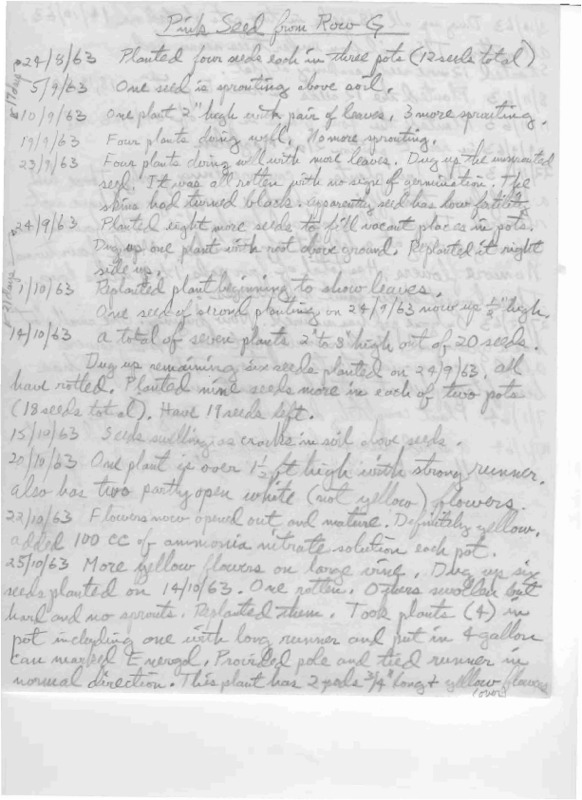 Pink Seed from Row G
24/8/63 Planted four seeds each in three pots (12 seeds total)
5/9/63 One seed is sprouting above soil.
10/9/63 One plant 2" high with pair of leaves. 3 more sprouting.
19/9/63 Four plants doing well. No more sprouting.
23/9/63 Four plants doing well with more leaves. Dug up the unsprouted
seed. It was all rotten with no sign of germination. The
skins had turned black. Apparently seed has low fertility
24/9/63 Planted eight more seeds to fill vacant places in pots.
Dug up one plant with root above ground. Replanted it right
side up.
1/10/63 Replanted plant beginning to show leaves.
One seed of second planting on 24/9/63 now up ½" high.
14/10/63 a total of seven plants 2 to 8" high out of 20 seeds.
Dug up remaining six seeds planted on 24/9/63. all
have rotted. Planted nine seeds more in each of two pots
(18 seeds total). Have 19 seeds left.
15/10/63 Seeds swelling as cracks in soil above seeds.
20/10/63 One plant is over 1½ ft high with strong runner.
also has two partly open white (not yellow) flowers.
22/10/63 Flowers now opened out and mature. Definitely yellow.
added 100 CC of ammonia nitrate solution each pot.
25/10/63 More yellow flowers on large vine. Dug up six
seeds planted on 14/10/63. One rotten. Others swollen but
hard and no sprouts. Replanted them. Took plants (4) in
pot including one with long runner and put in 4 gallon
can marked Energol. Provided pole and tied runner in
normal direction. This plant has 2 pods ¾" long + yellow flowers
(over)